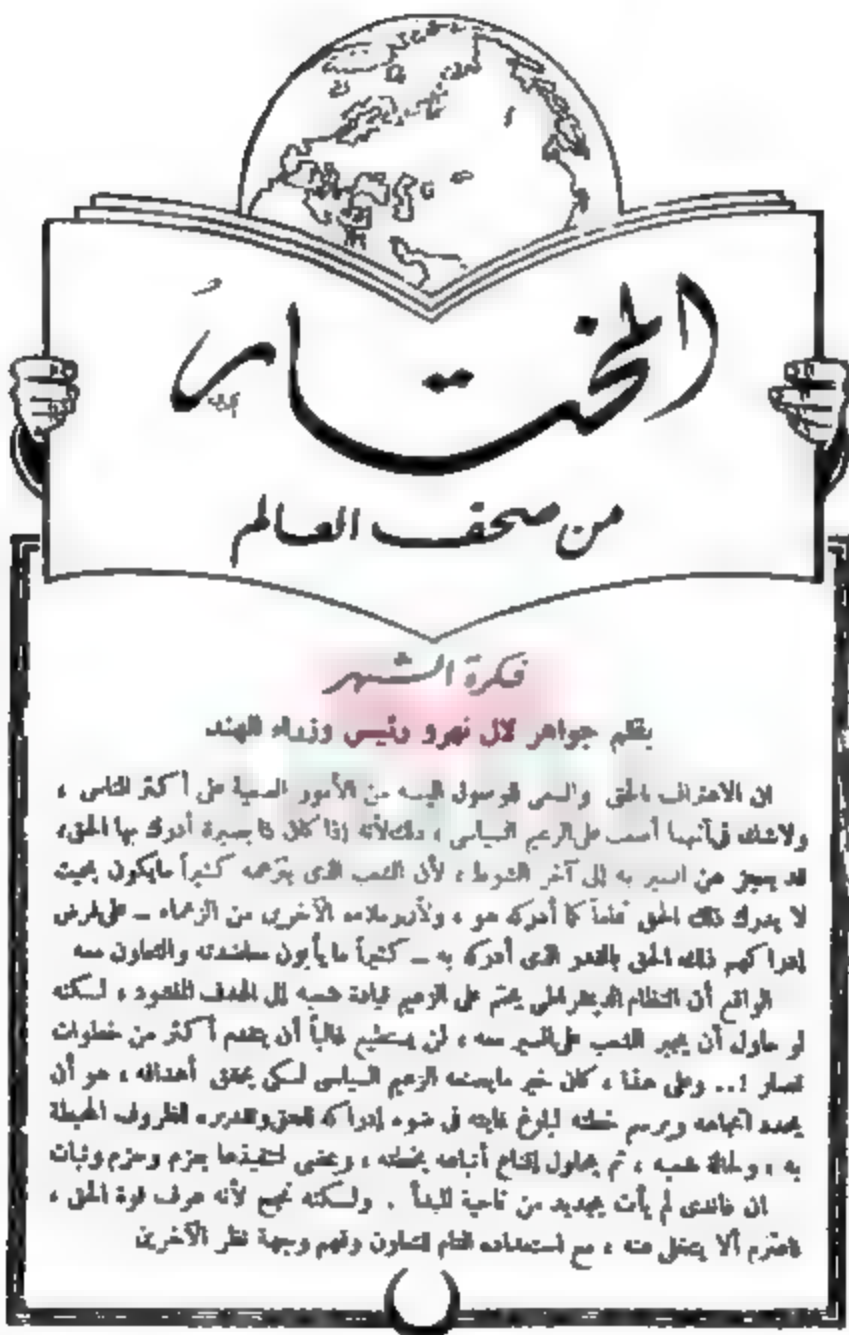 المختار
من صحف العالم
فكرة الشهر
بقلم جواهر لال نهرو رئيس وزراء الهند
ان الاعتراف بالحق والسعى للوصول اليه من الأمور الصعبة على أكثر الناس ،
ولاشك فى أنهما أصعب على الزعيم السياسى ، ذلك لأنه إذا كان ذا بصيرة أدرك بها الحق ،
قد يعجز عن السير به إلى آخر الشوط ، لأن الشعب الذى يتزعمه كثيراً مايكون بحيث
لا يدرك ذلك الحق تماماً كما أدركه هو ، ولأن زملاءه الآخرين من الزعماء ــ على فرض
إدراكهم ذلك الحق بالقدر الذى أدركه به ــ كثيراً ما يأبون مساندته والتعاون معه
الواقع أن النظام الديمقراطى يحتم على الزعيم قيادة شعبه إلى الهدف المنشود ، لسكنه
لو حاول أن يجبر الشعب على السير معه ، لن يستطيع غالباً أن يتقدم أكثر من خطوات
قصار !.. وعلى هذا ، كان خير مايصنعه الزعيم السياسى لكى يحقق أهدافه ، هو أن
يحدد اتجاهه ويرسم خطته لبلوغ غايته فى ضوء إدراكه للحق وتقديره للظروف المحيطة
به ، وحالة شعبه ، ثم يحاول إقناع أتباعه بخطته ، ويمضى لتنفيذها بعزم وحزم وثبات
ان غاندى لم يأت بجديد من ناحية المبدأ . ولكنه نجح لأنه عرف قوة الحق ،
فاعتزم ألا يتخلى عنه ، مع استعداده التام للتعاون وفهم وجهة نظر الآخرين